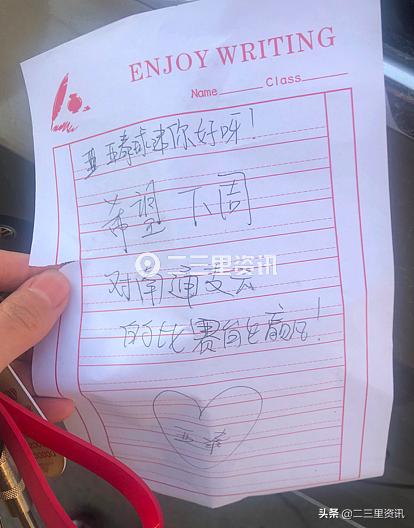 ENJOY WRITING
Name Class
亚 亚泰球迷你好呀!
希望 下周
二三里资讯
对南通支云
的比赛能赢!
亚泰
头条 @二三里资讯